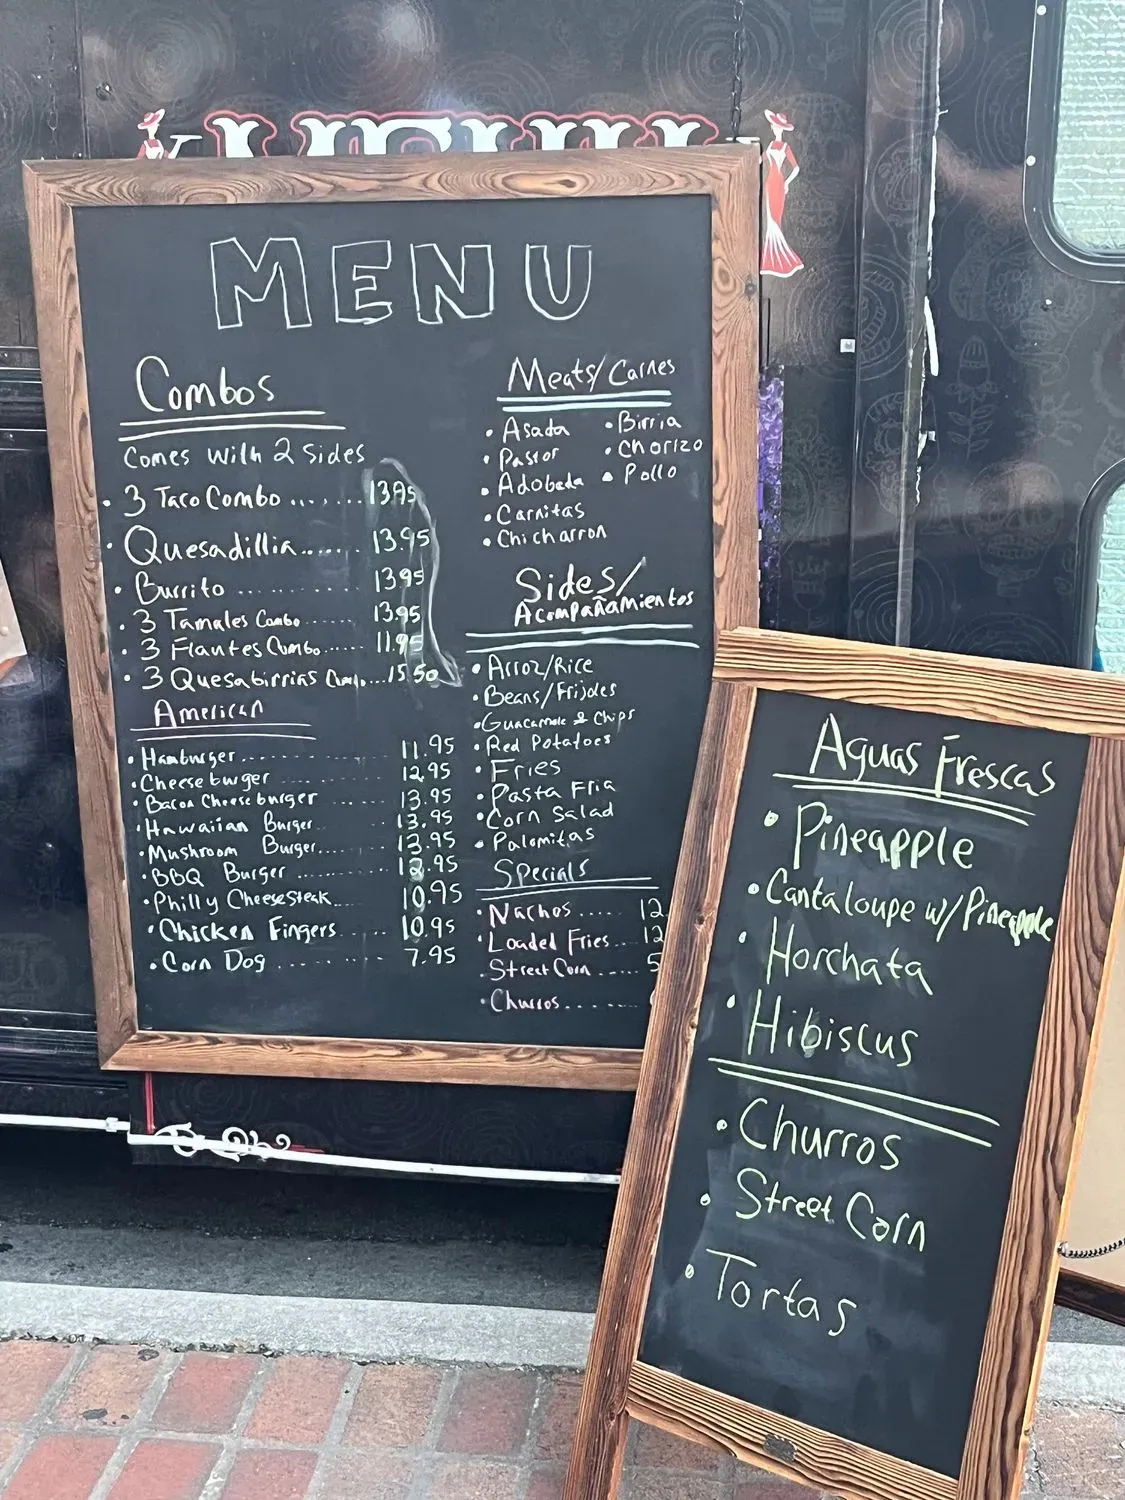 MENU
Combos
Comes with 2 sides
• 3 Taco Combo ........ 13.95
• Quesadillia ....... 13.95
• Burrito .......... 13.95
• 3 Tamales Combo ....... 13.95
• 3 Flautes Combo ..... 11.95
• 3 Quesabirrias Combo ... 15.50
American
• Hamburger ............... 11.95
• Cheeseburger ............ 12.95
• Bacon Cheeseburger ...... 13.95
• Hawaiian Burger ..... 13.95
• Mushroom Burger ..... 13.95
• BBQ Burger .......... 12.95
• Philly CheeseSteak .... 10.95
• Chicken Fingers ..... 10.95
• Corn Dog ........... 7.95
Meats/Carnes
• Asada
• Pastor
• Adobada
• Carnitas
• Chicharron
• Birria
• Chorizo
• Pollo
Sides/
Acompañamientos
• Arroz/Rice
• Beans/Frijoles
• Guacamole & Chips
• Red Potatoes
• Fries
• Pasta Fria
• Corn Salad
• Palomitas
Specials
• Nachos ..... 12
• Loaded Fries .... 12
• Street Corn ..... 5
• Churros .......
Aguas Frescas
• Pineapple
• Cantaloupe w/Pineapple
• Horchata
• Hibiscus
• Churros
• Street Corn
• Tortas